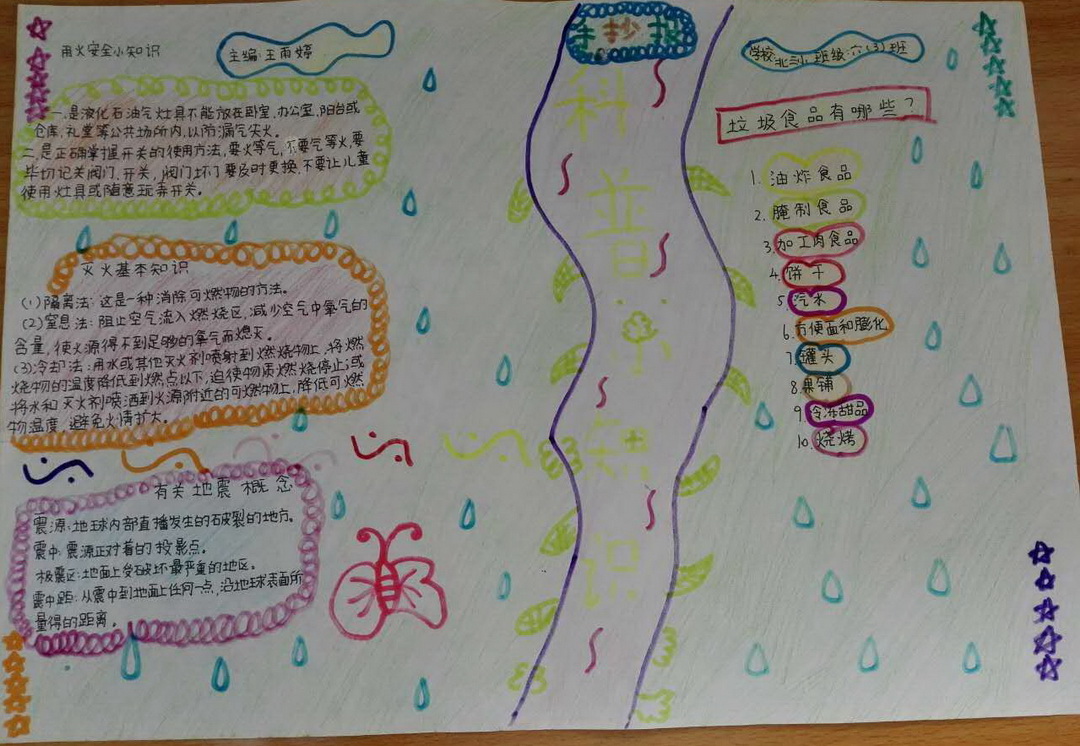 用火安全小知识
主编:王雨婷
一.是液化石油气灶具不能放在卧室,办公室,阳台或
仓库,礼堂等公共场所内,以防漏气失火。
二.是正确掌握开关的使用方法,要火等气,不要气等火,要
毕切记关阀门、开关,阀门坏门要及时更换,不要让儿童
使用灶具或随意玩弄开关。
灭火基本知识
(1)隔离法:这是一种消除可燃物的方法。
(2)窒息法:阻止空气流入燃烧区,减少空气中氧气的
含量,使火源得不到足够的氧气而熄灭。
(3)冷却法:用水或其他灭火剂喷射到燃烧物上,将燃
烧物的温度降低到燃点以下,迫使物质燃烧停止;或
将水和灭火剂喷洒到火源附近的可燃物上,降低可燃
物温度,避免火情扩大。
有关地震概念
震源:地球内部直播发生的破裂的地方。
震中:震源正对着的投影点。
极震区:地面上受破坏最严重的地区。
震中距:从震中到地面上任何一点,沿地球表面所
量得的距离。
手抄报
科
普
知
识
学校 北三小 班级:六(3)班
垃圾食品有哪些?
1.油炸食品
2.腌制食品
3.加工肉食品
4.饼干
5.汽水
6.方便面和膨化
7.罐头
8.果铺
9.冷冻甜品
10.烧烤